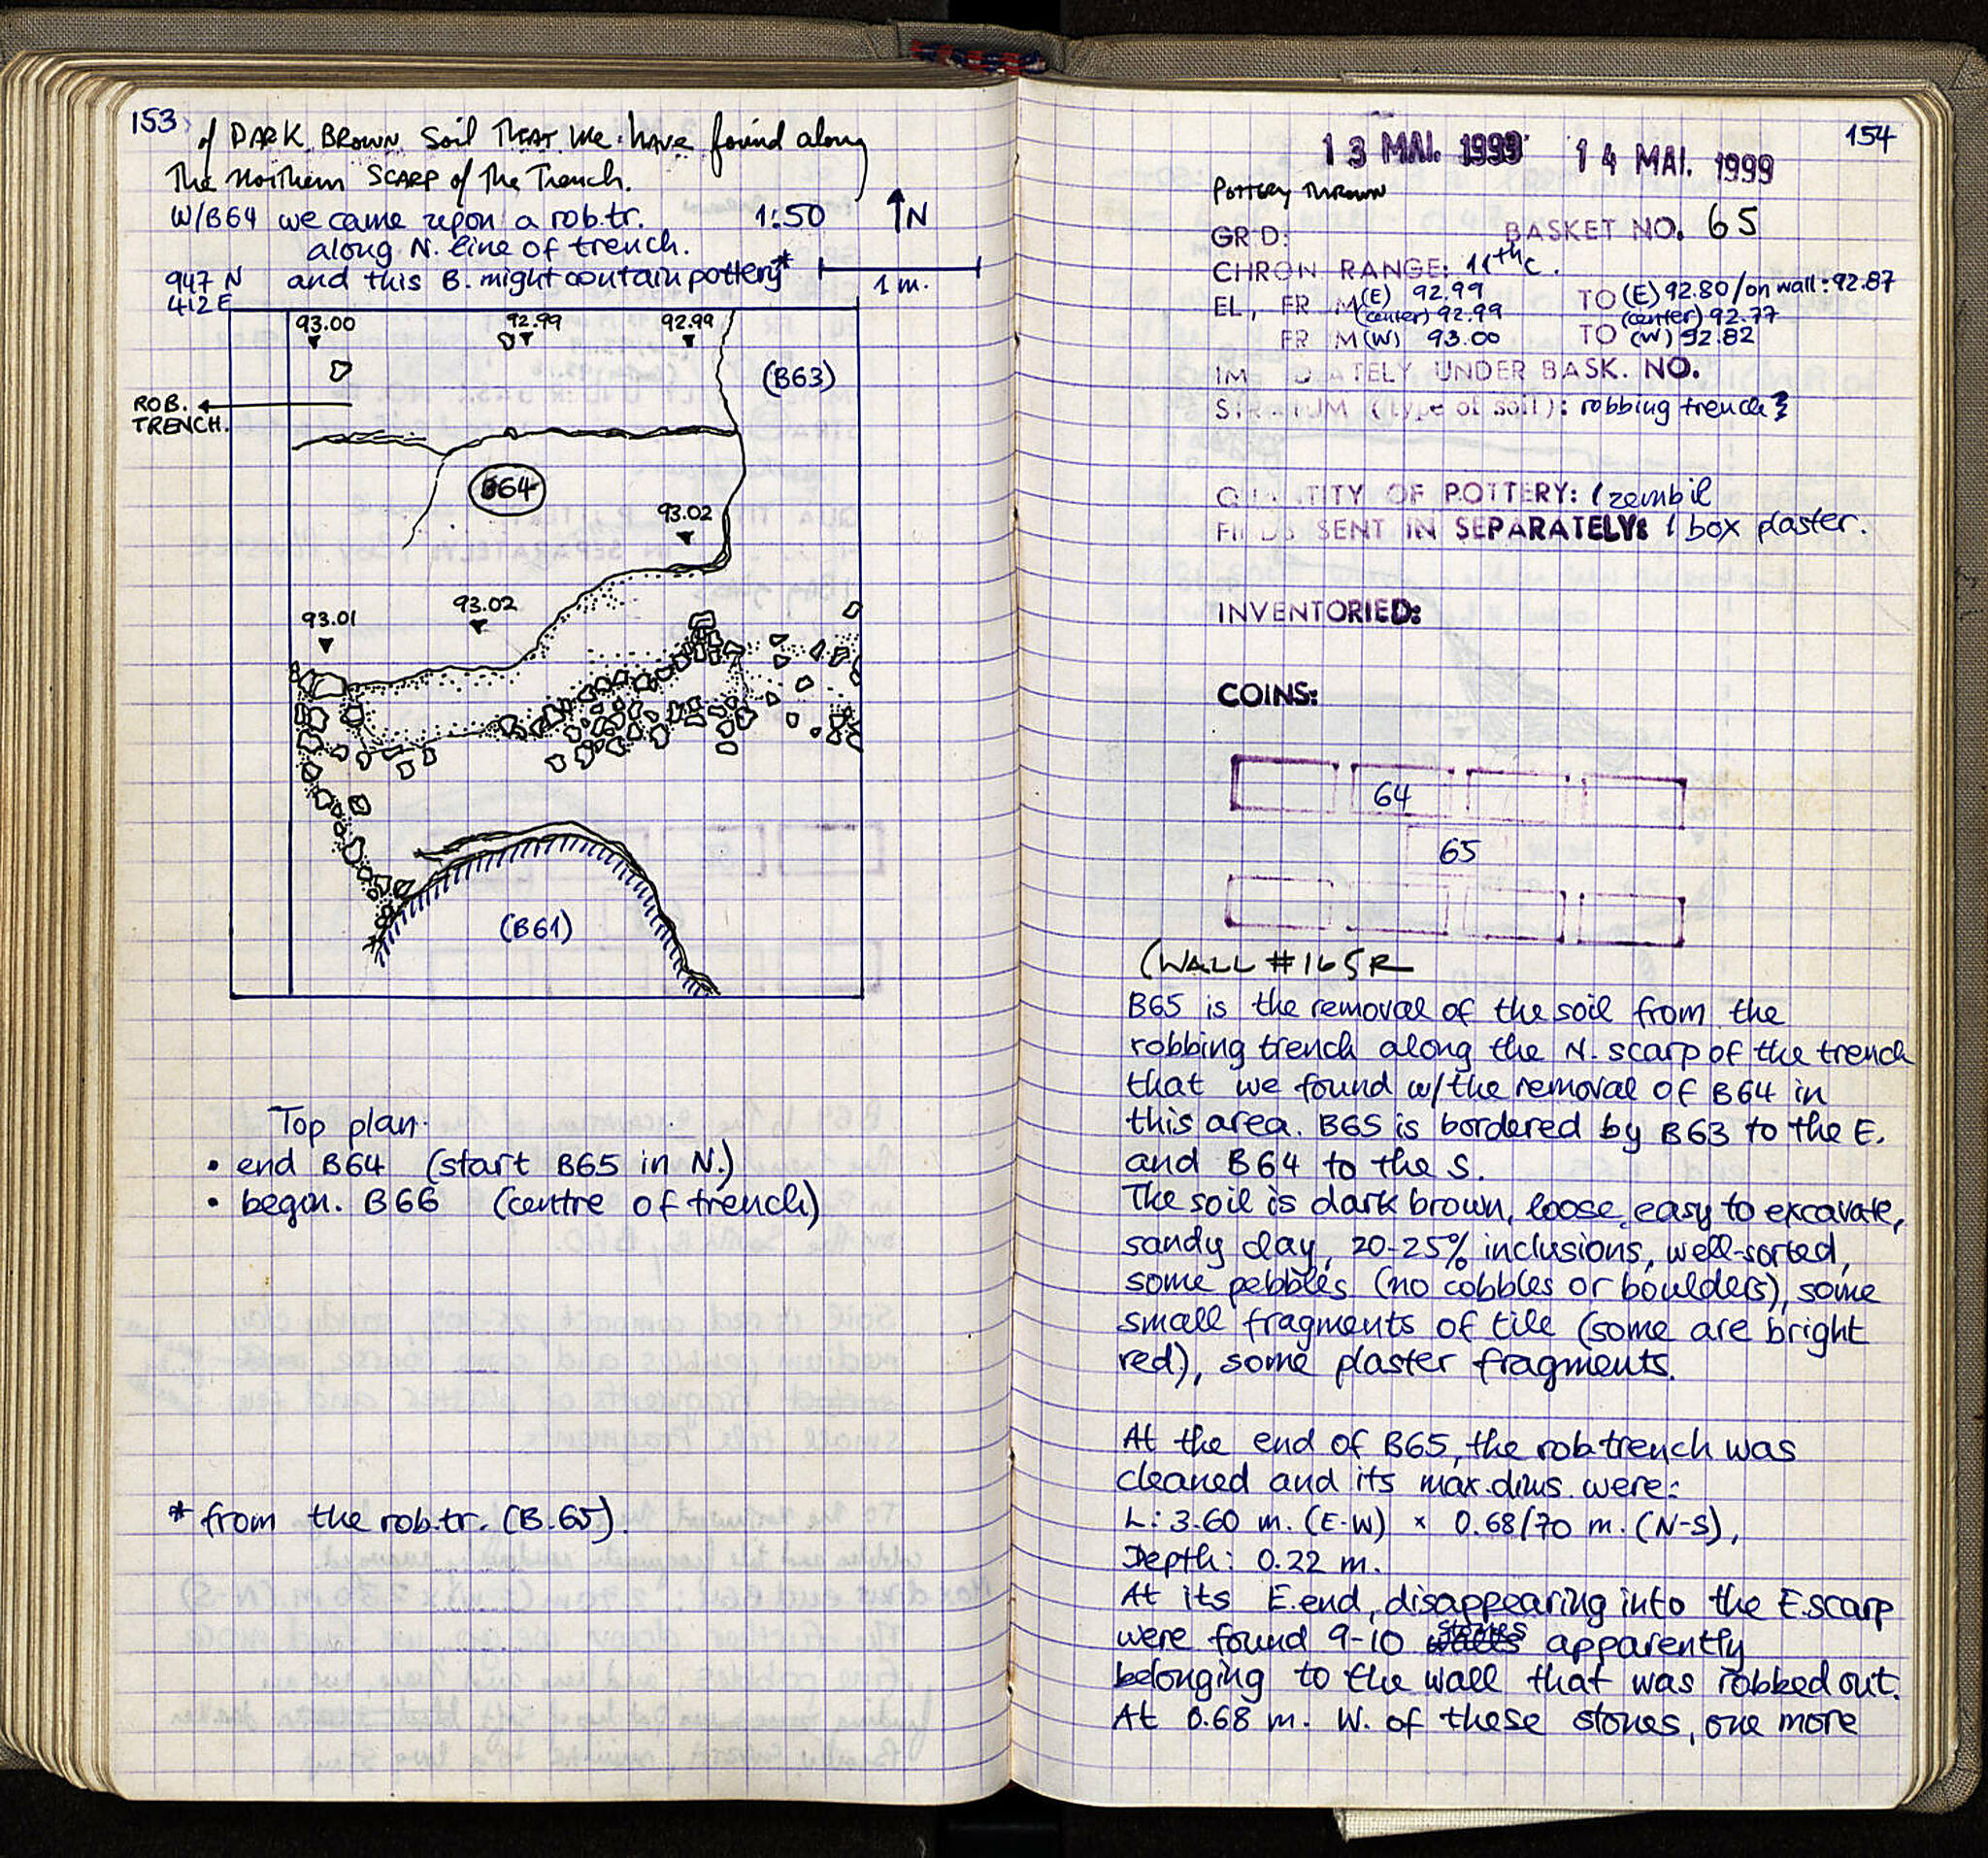 153
of DARK BROWN soil THAT we have found along
The Northern SCARP of The Trench.
W/B64 we came upon a rob.tr. 1:50 N
along N. line of trench.
947 N and this B. might contain pottery* 1 m.
412 E
93.00 92.99 92.99
(B63)
ROB.
TRENCH.
B64
93.02
93.02
93.01
(B61)
Top plan.
• end B64 (start B65 in N.)
• begin. B66 (centre of trench)
* from the rob.tr. (B.65).
154
13 MAI. 1999 14 MAI. 1999
Pottery Thrown
GRID: BASKET NO. 65
CHRON RANGE: 11th c.
EL, FR M (E) 92.99 TO (E) 92.80/on wall: 92.87
(center) 92.99 (center) 92.77
FR M (W) 93.00 TO (W) 92.82
IM DIATELY UNDER BASK. NO.
STRATUM (type of soil): robbing trench
QUANTITY OF POTTERY: 1 zembil
FINDS SENT IN SEPARATELY: 1 box plaster.
INVENTORIED:
COINS:
64
65
(WALL #165R
B65 is the removal of the soil from the
robbing trench along the N. scarp of the trench
that we found w/the removal of B64 in
this area. B65 is bordered by B63 to the E.
and B64 to the S.
The soil is dark brown, loose, easy to excavate,
sandy clay, 20-25% inclusions, well-sorted,
some pebbles (no cobbles or boulders), some
small fragments of tile (some are bright
red), some plaster fragments.
At the end of B65, the rob.trench was
cleaned and its max.dims. were:
L: 3.60 m. (E-W) × 0.68/70 m. (N-S),
Depth: 0.22 m.
At its E.end, disappearing into the E.scarp
were found 9-10 stones apparently
belonging to the wall that was robbed out.
At 0.68 m. W. of these stones, one more